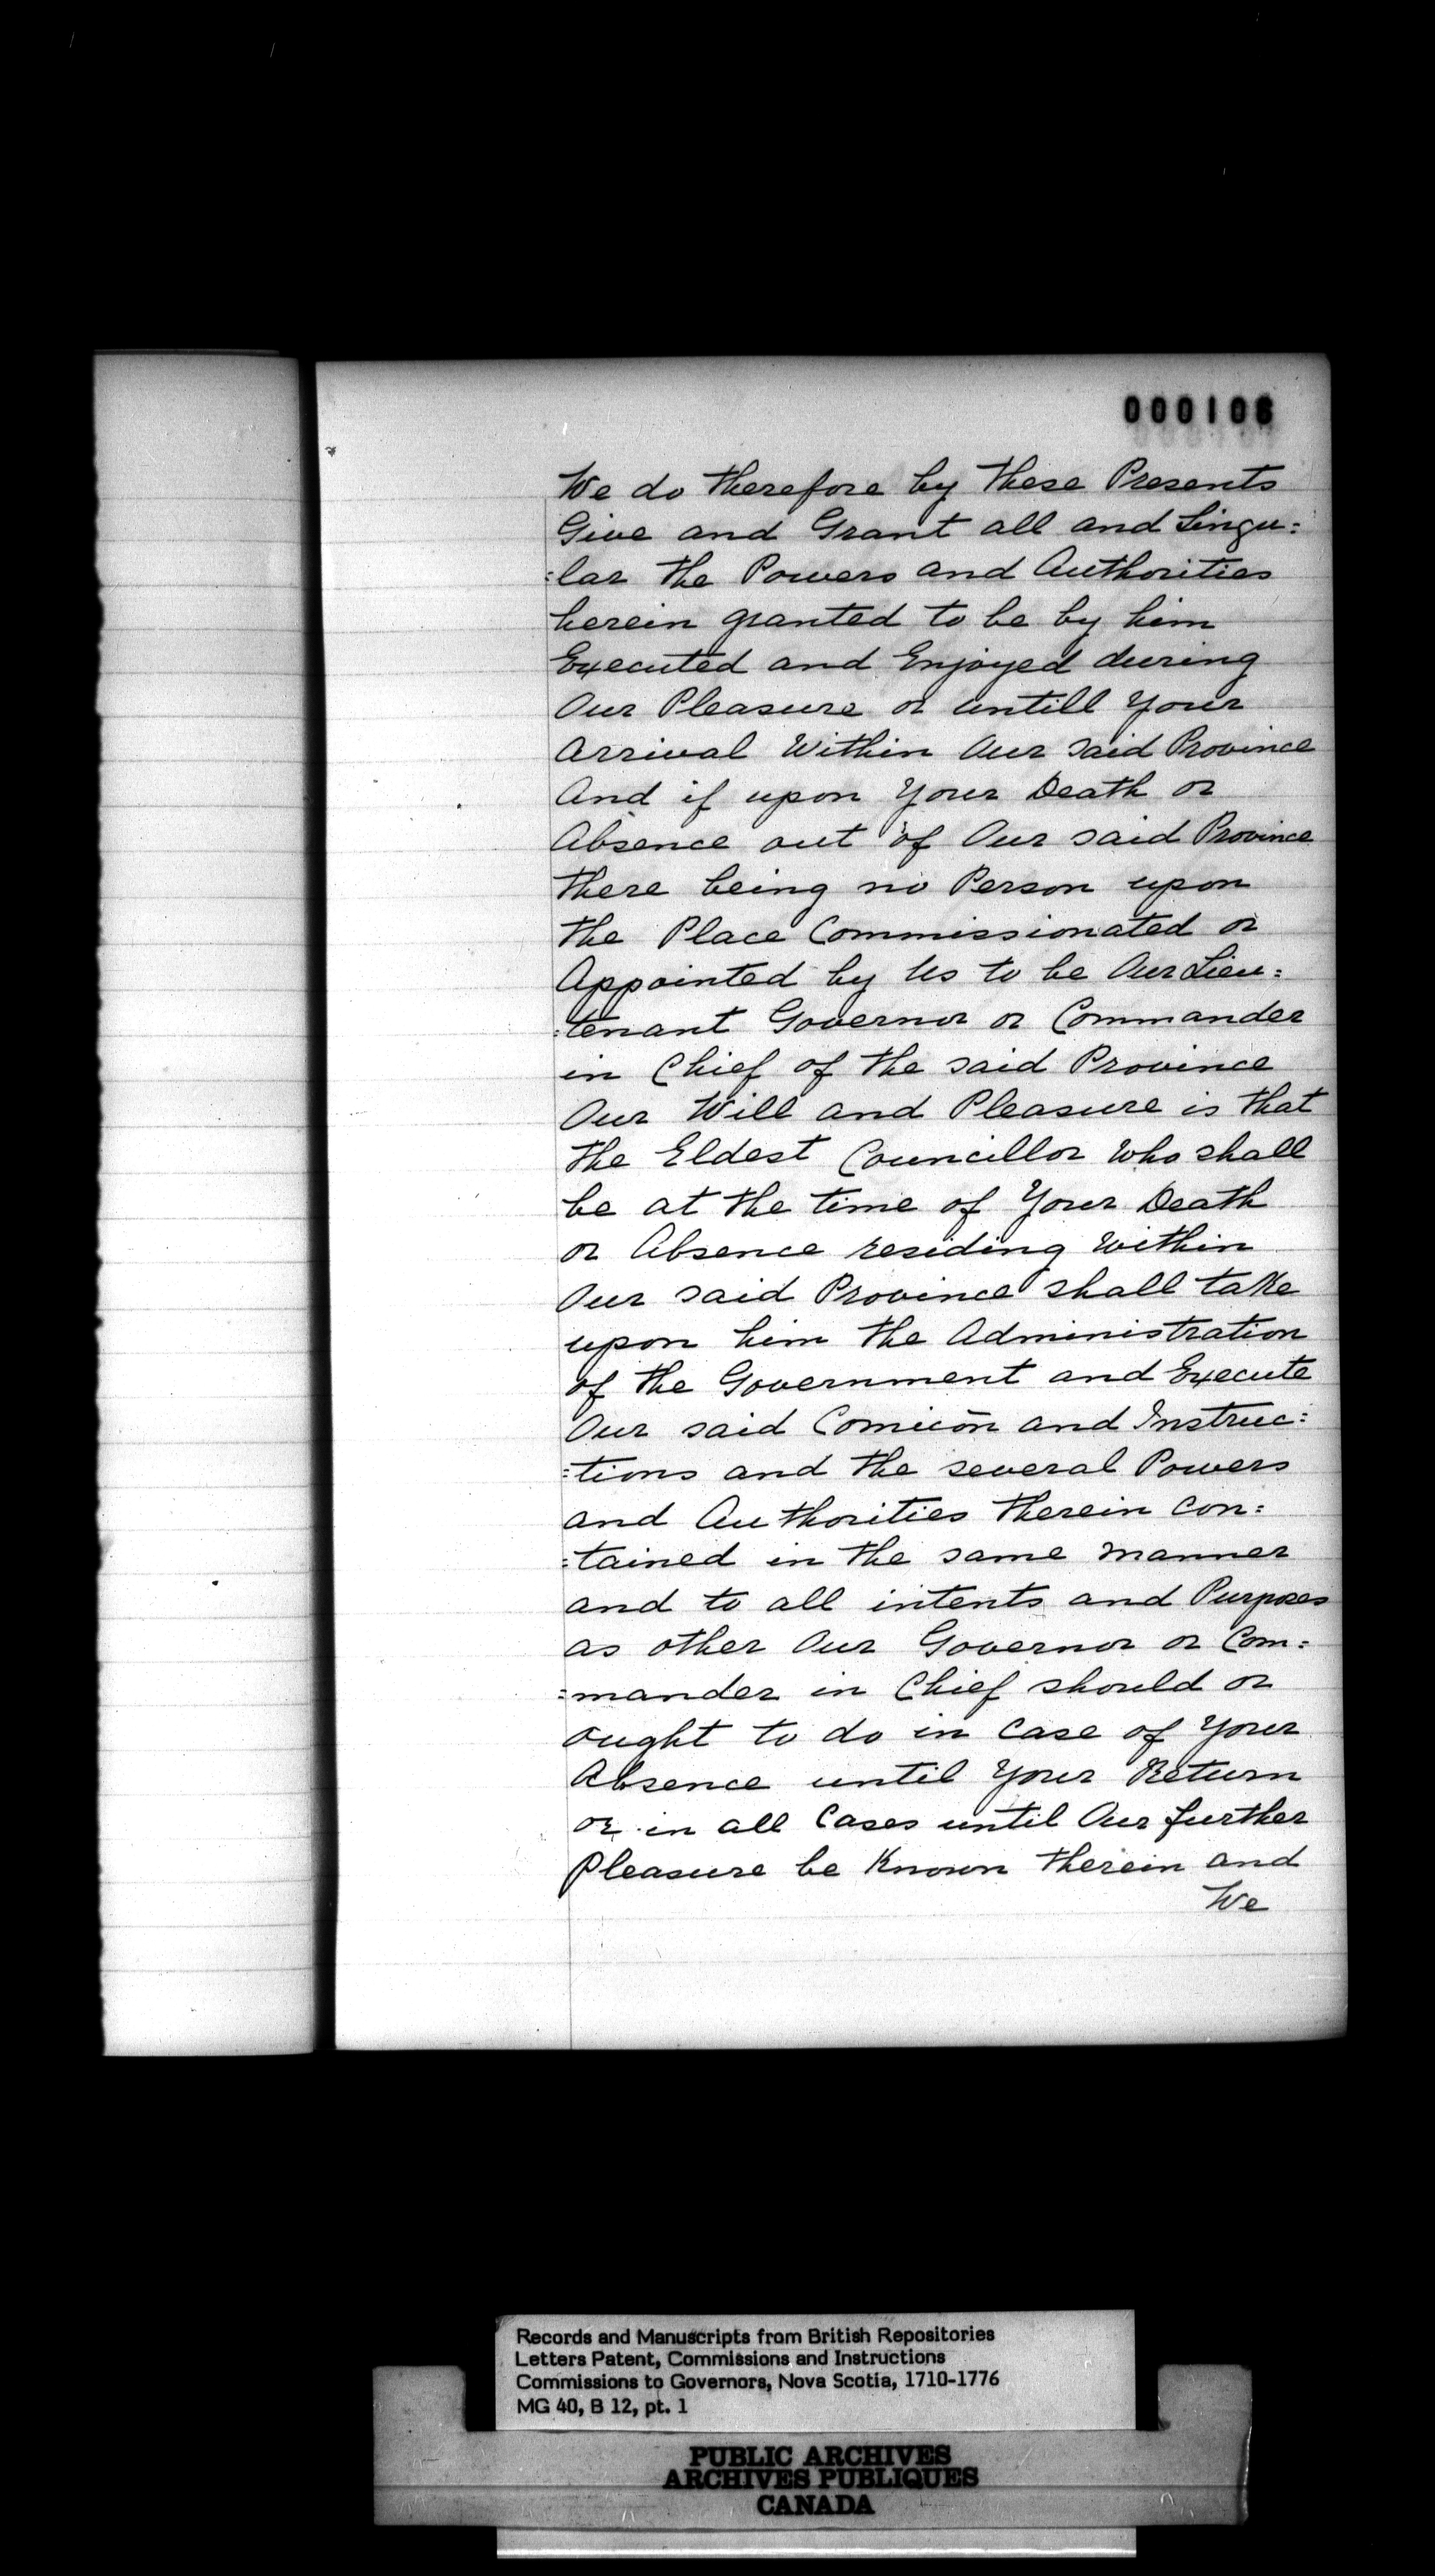 000106
We do therefore by these Presents
Give and Grant all and Singu:
:lar the Powers and Authorities
herein granted to be by him
Executed and Enjoyed during
Our Pleasure or untill Your
Arrival Within Our said Province
And if upon Your Death or
Absence out of Our said Province
there being no Person upon
the Place Commissionated or
Appointed by Us to be Our Lieu:
:tenant Governor or Commander
in Chief of the said Province
Our Will and Pleasure is that
the Eldest Councillor Who shall
be at the time of Your Death
or Absence residing Within
Our said Province shall take
upon him the Administration
of the Government and Execute
Our said Comicōn and Instruc:
:tions and the several Powers
and Authorities therein Con:
:tained in the same manner
and to all intents and Purposes
as other Our Governor or Com:
:mander in Chief should or
ought to do in Case of Your
Absence until Your Return
or in all Cases until Our further
Pleasure be Known therein and
We
Records and Manuscripts from British Repositories
Letters Patent, Commissions and Instructions
Commissions to Governors, Nova Scotia, 1710-1776
MG 40, B 12, pt. 1
PUBLIC ARCHIVES
ARCHIVES PUBLIQUES
CANADA